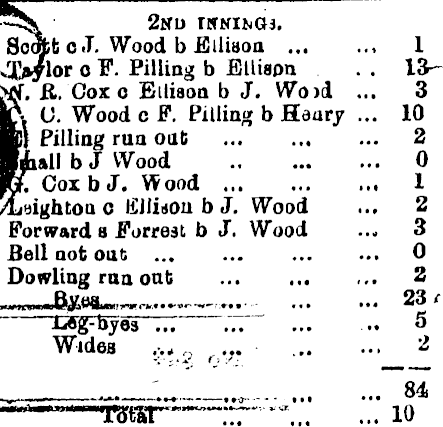 2ND INNINGS.
Scott c J. Wood b Ellison ... ... 1
Taylor c F. Pilling b Ellison . . 13
N. R. Cox c Ellison b J. Wood ... 3
C. Wood c F. Pilling b Heury ... 10
Pilling run out ... ... ... 2
Small b J Wood .. ... ... 0
G. Cox b J. Wood ... ... ... 1
Leighton c Ellison b J. Wood ... 2
Forward s Forrest b J. Wood ... 3
Bell not out ... ... ... ... 0
Dowling run out ... ... ... 2
Byes ... ... ... 23
Leg-byes ... ... ... .. 5
Wides ... ... ... 2
84
Total ... ... ... 10